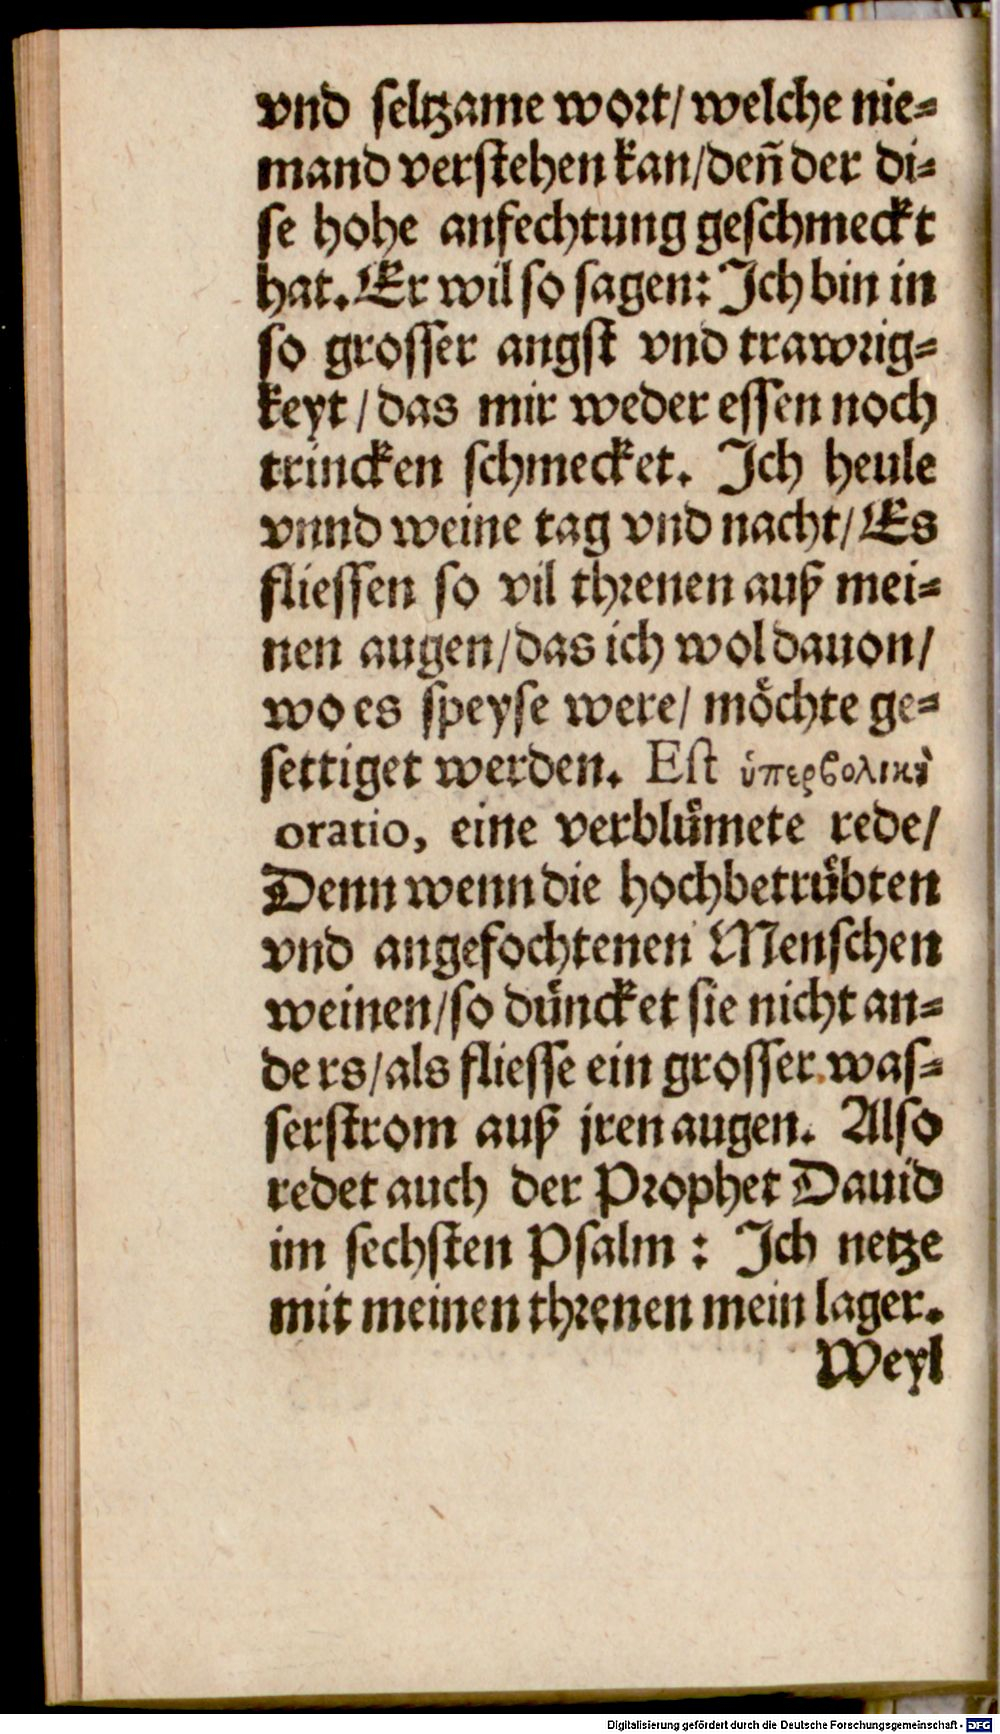 vnd ſeltzame wort/ welche nie⸗
mand verſtehen kan/ deñ der di⸗
ſe hohe anfechtung geſchmeckt
hat. Er wil ſo ſagen: Ich bin in
ſo groſſer angſt vnd trawrig⸗
keyt / das mir weder eſſen noch
trincken ſchmecket. Ich heule
vnnd weine tag vnd nacht/ Es
flieſſen ſo vil threnen auß mei⸗
nen augen/ das ich wol dauon/
wo es ſpeyſe were/ möchte ge⸗
ſettiget werden. Eſt ὑπερβολικὴ
oratio, eine verblümete rede/
Denn wenn die hochbetrübten
vnd angefochtenen Menſchen
weinen/ ſo düncket ſie nicht an⸗
ders/ als flieſſe ein groſſer waſ⸗
ſerſtrom auß jren augen. Alſo
redet auch der Prophet Dauid
im ſechſten Pſalm : Ich netze
mit meinen threnen mein lager.
Weyl
Digitalisierung gefördert durch die Deutsche Forschungsgemeinschaft - DFG